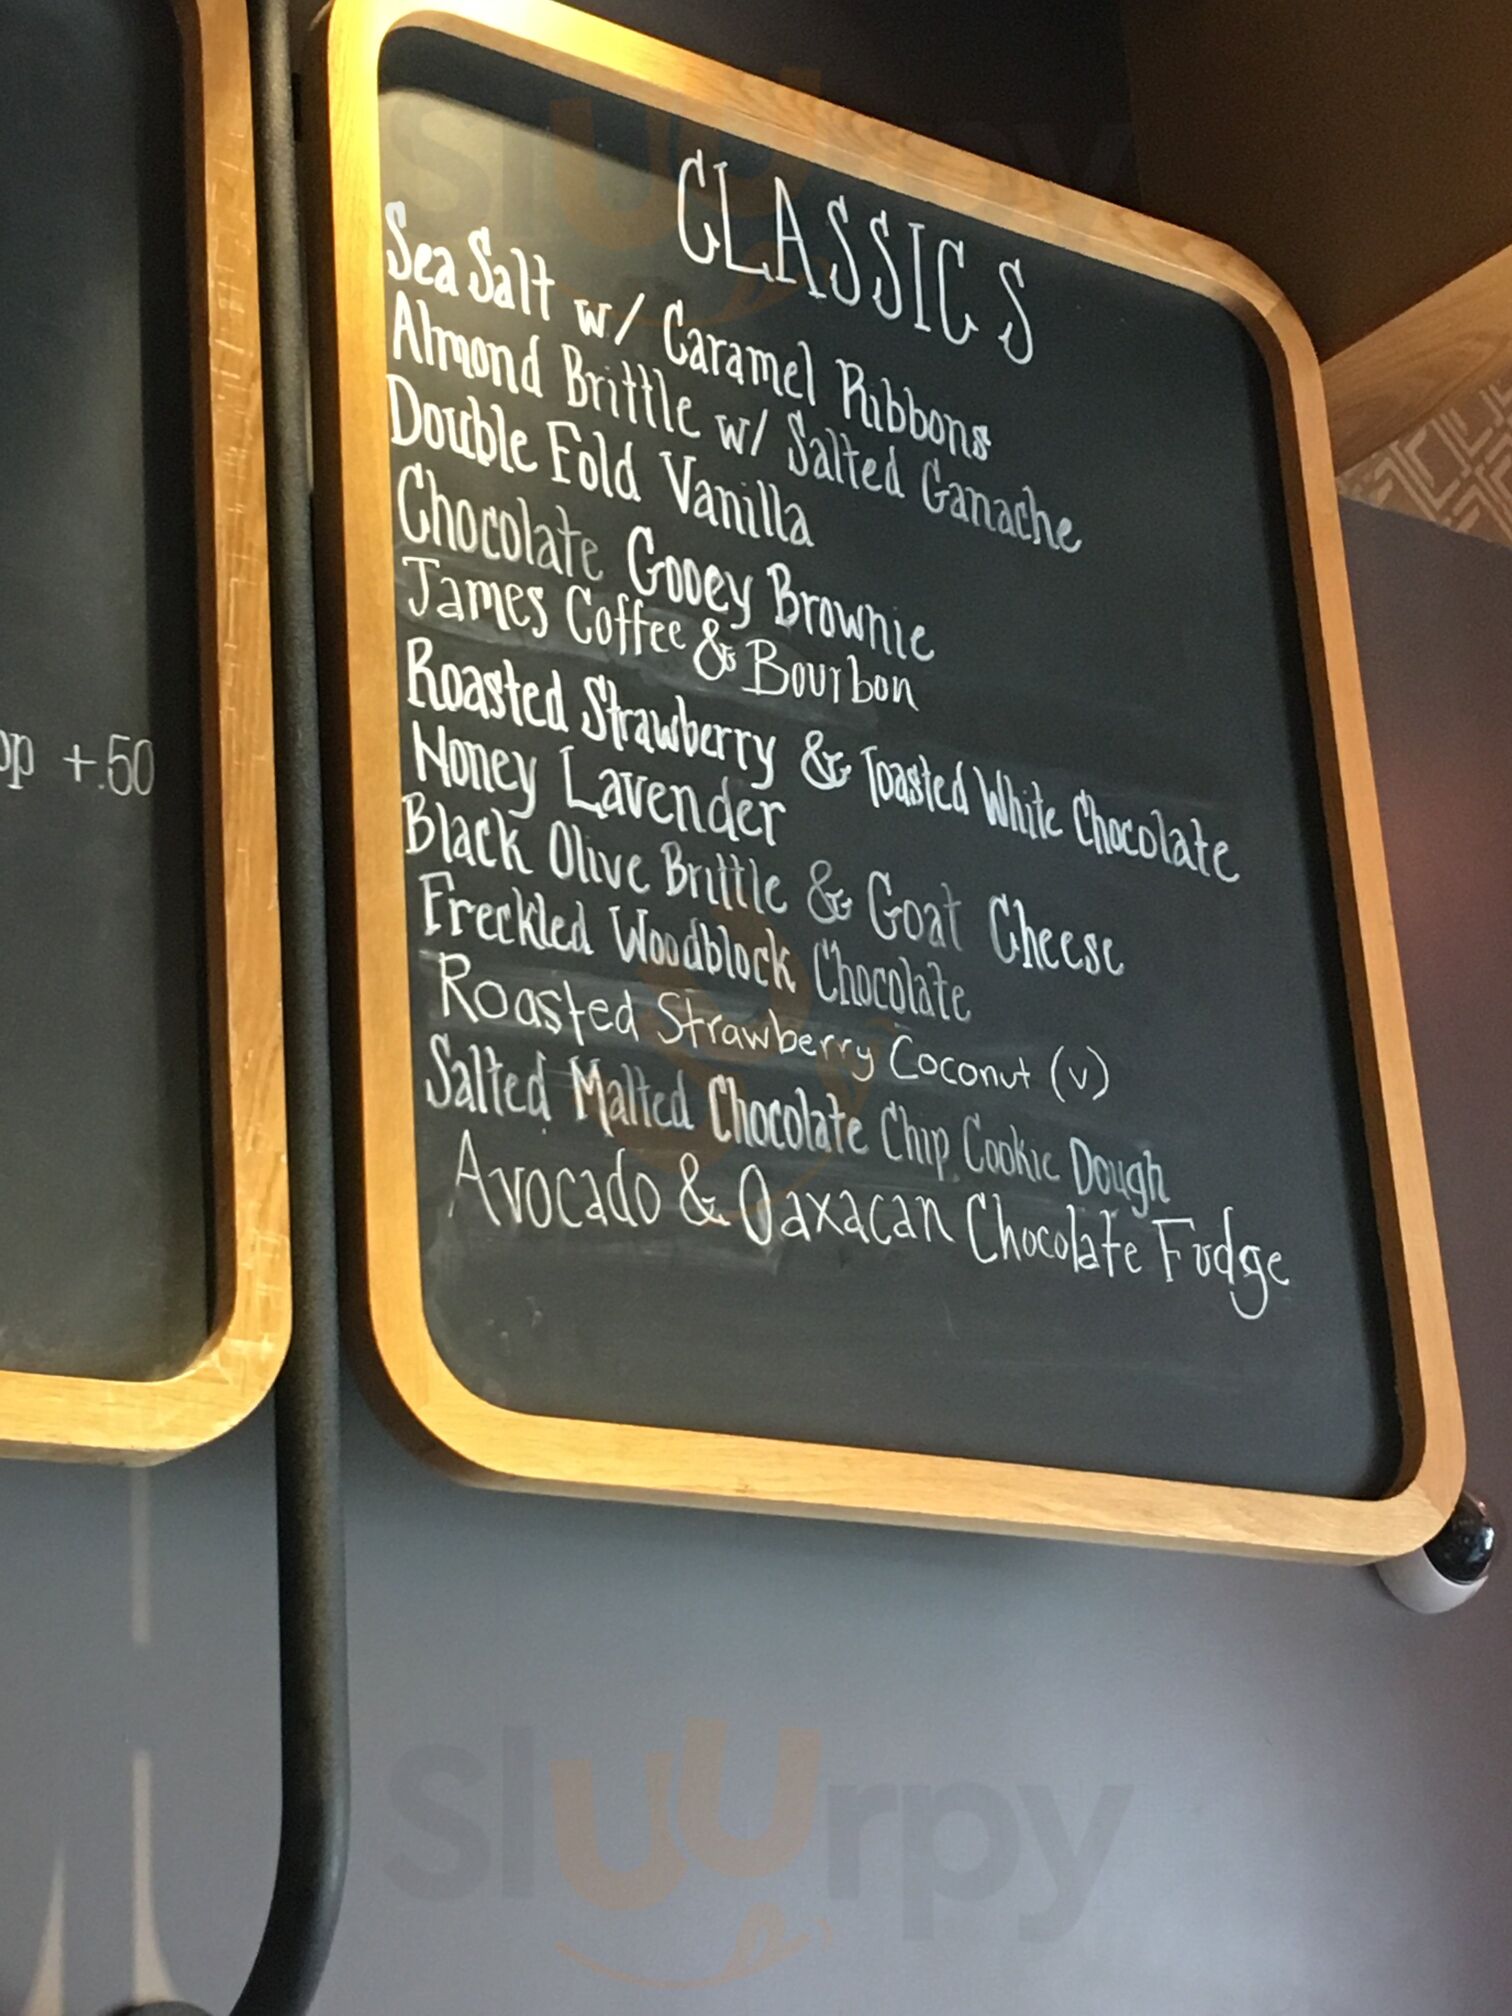 CLASSICS
Sea Salt w/ Caramel Ribbons
Almond Brittle w/ Salted Ganache
Double Fold Vanilla
Chocolate Gooey Brownie
James Coffee & Bourbon
Roasted Strawberry & Toasted White Chocolate
Honey Lavender
Black Olive Brittle & Goat Cheese
Freckled Woodblock Chocolate
Roasted Strawberry Coconut (v)
Salted Malted Chocolate Chip Cookie Dough
Avocado & Oaxacan Chocolate Fudge
+.50
Sluurpy
Sluurpy